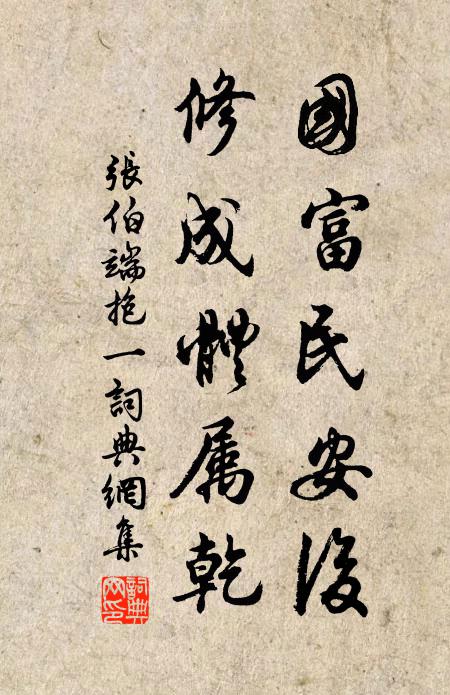 國富民安後
修成體属乾
張伯端抱一詞典網集
詞典
网印